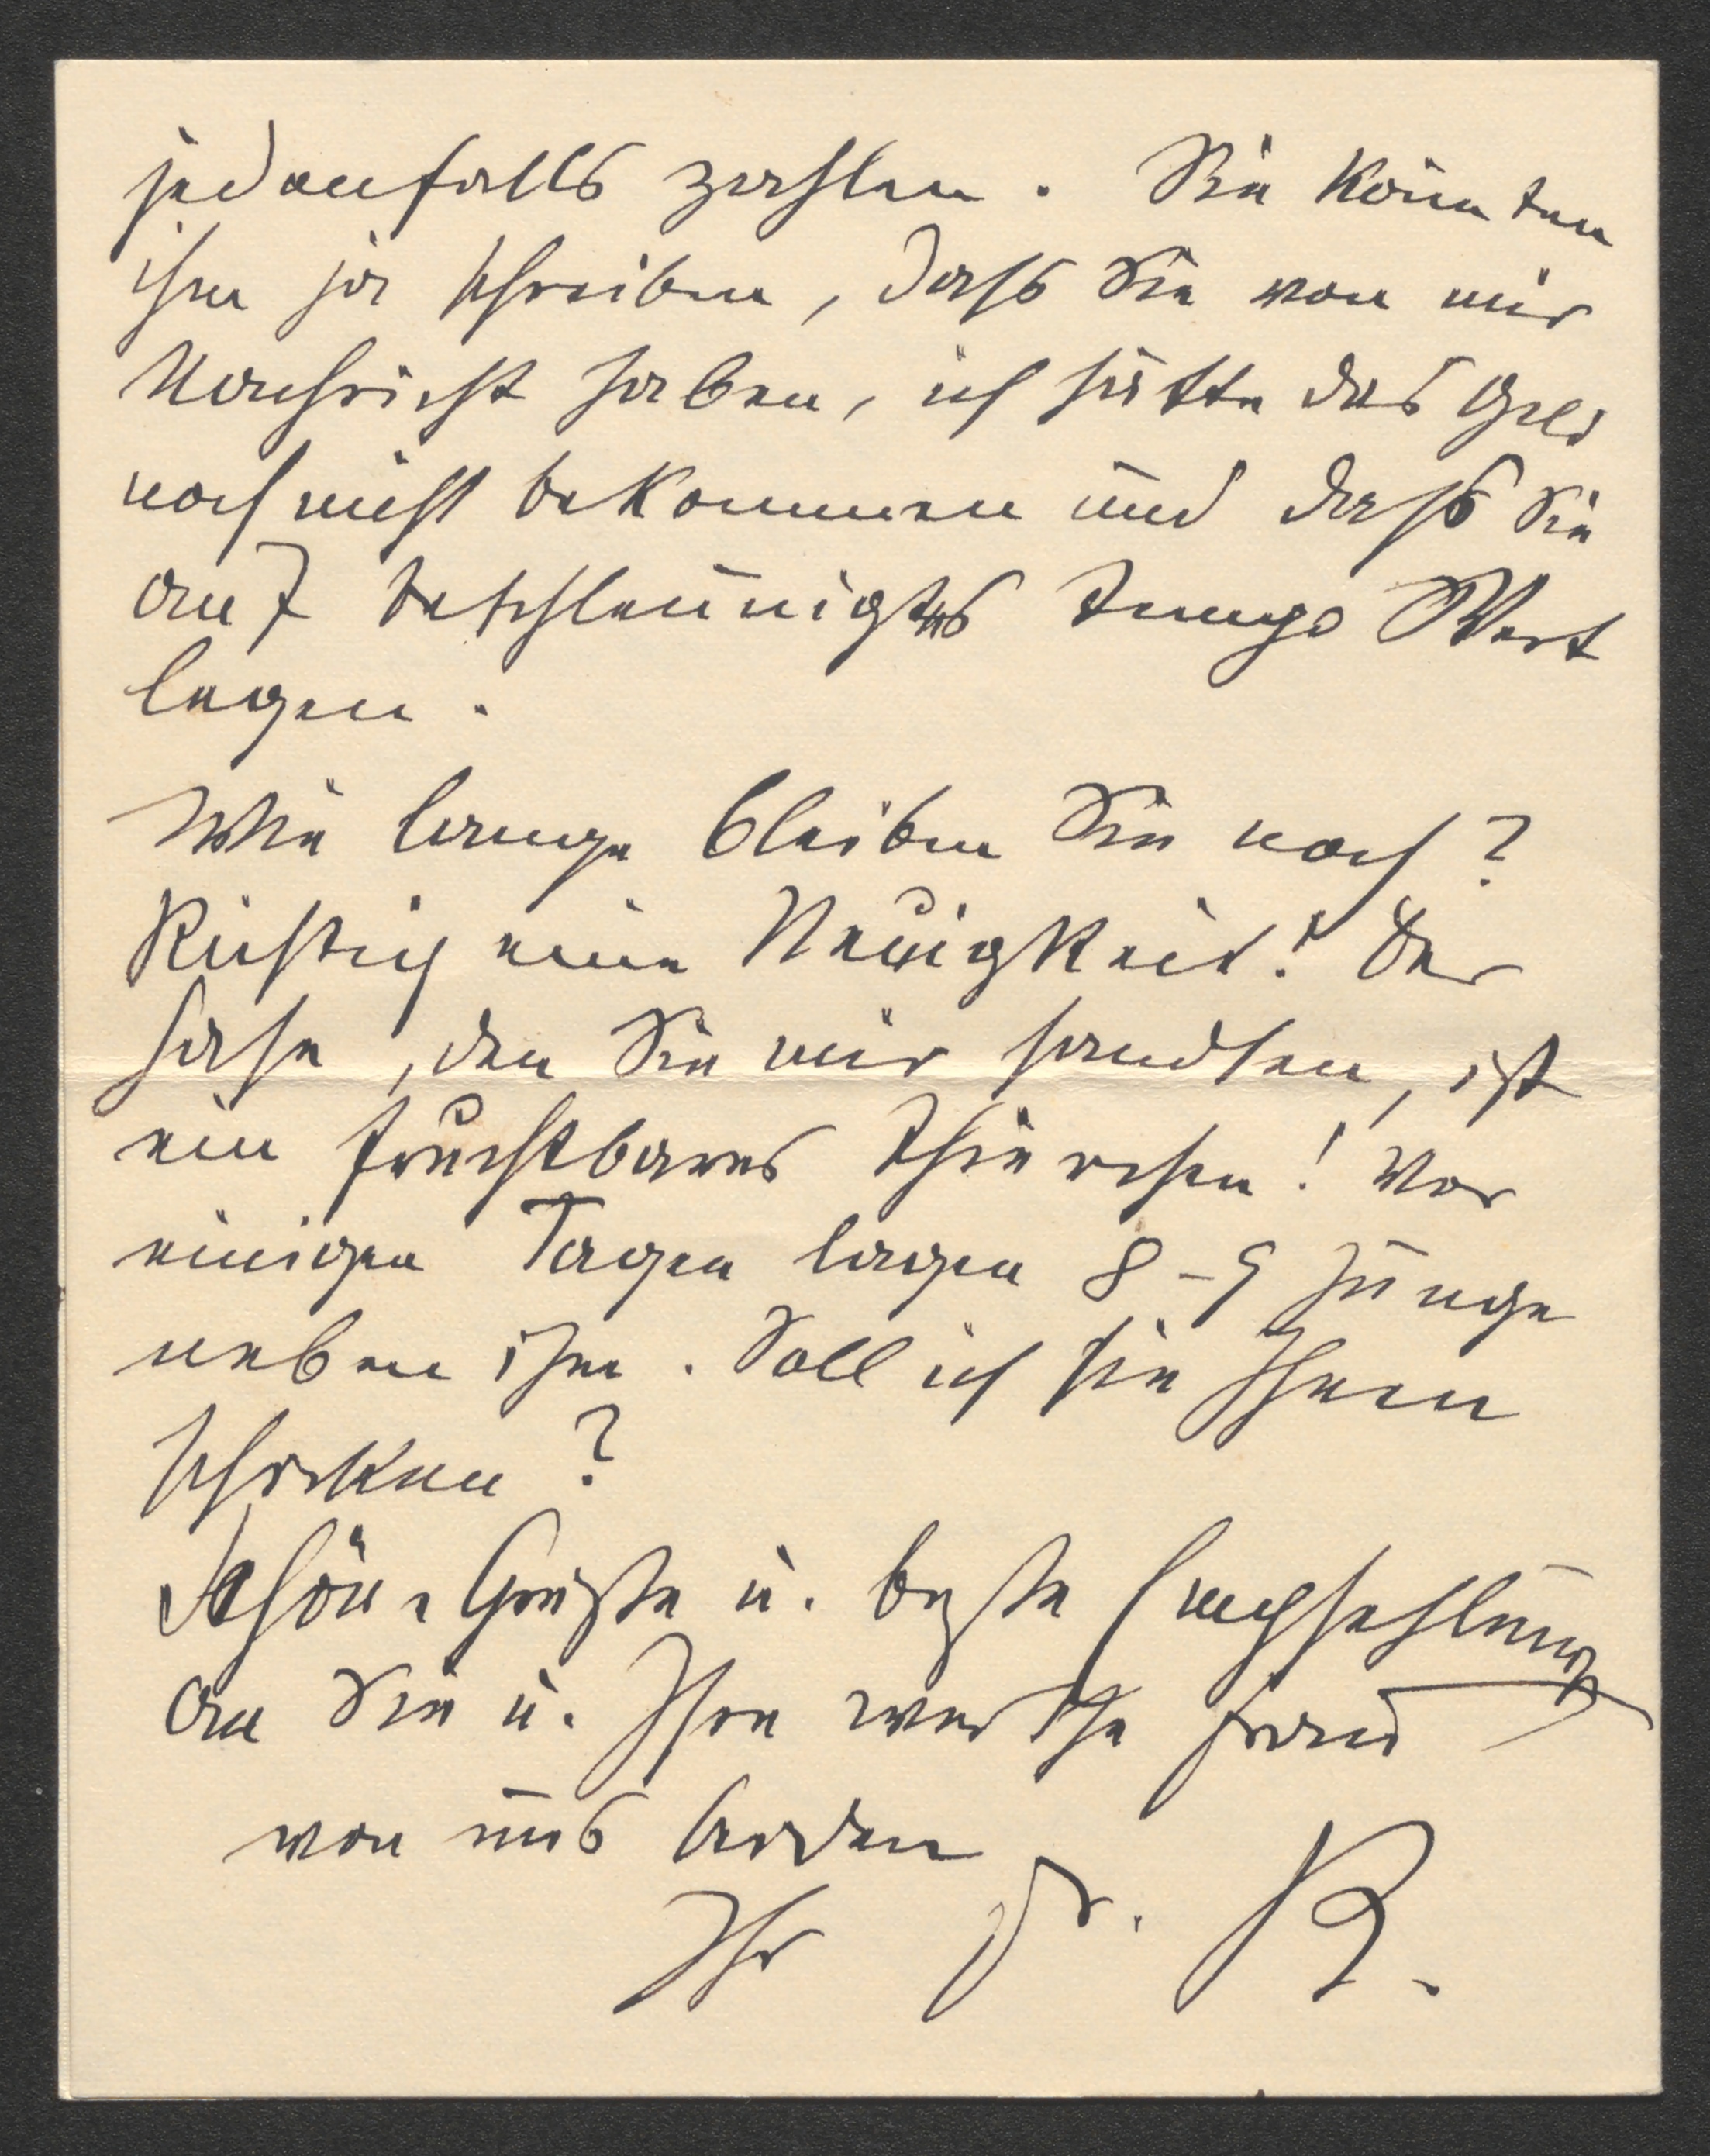 jedenfalls zahlen. Sie könnten
ihm ja schreiben, dass Sie von mir
Nachricht haben, ich hätte das Geld
noch nicht bekommen und dass Sie
auf beschleunigtes Tempo Wert
legen.
Wie lange bleiben Sie noch?
Richtig eine Neuigkeit! Der
Hase, den Sie mir sandten, ist
ein fruchtbares Thierchen! Vor
einigen Tagen lagen 8-9 Junge
neben ihm. Soll ich sie Ihnen
schicken?
Schöne Grüsse u. beste Empfehlung
an Sie u. Ihre werthe Frau
von uns beiden
Ihr Dr. R.